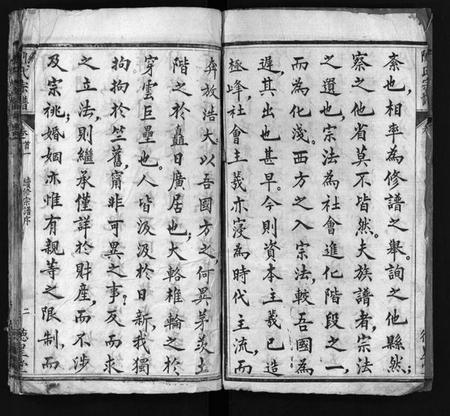 紊也相率為修譜之舉詢之他縣然
察之他省莫不皆然夫族譜者宗法
之遺也宗法為社會進化階段之一
而為化淺西方之入宗法較吾國為
遲其出也甚早今則資本主義已造
極峰社會主義亦寖為時代主流而
奔放浩大以吾國方之何異茅茨土
階之於矗日廣居也大輅椎輪之於
穿雲巨壘也人皆汲汲於日新我獨
拘拘於竺舊甯非可異之事及而求
之立法則繼承僅詳於財產而不涉
及宗祧婚姻亦惟有親等之限制而
氏宗譜
卷首
續修宗譜序
二